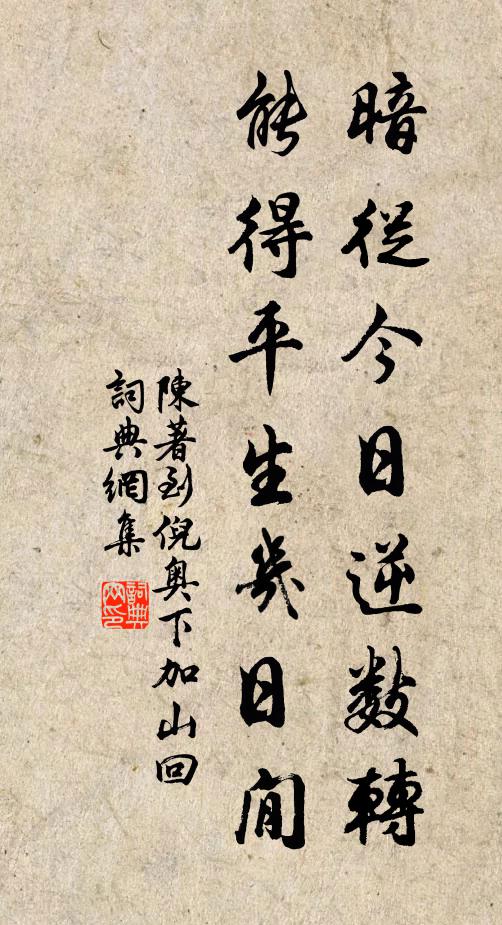 暗從今日逆數轉
能得平生幾日閒
陳著到倪奧下加山回
詞典網集
詞典網印